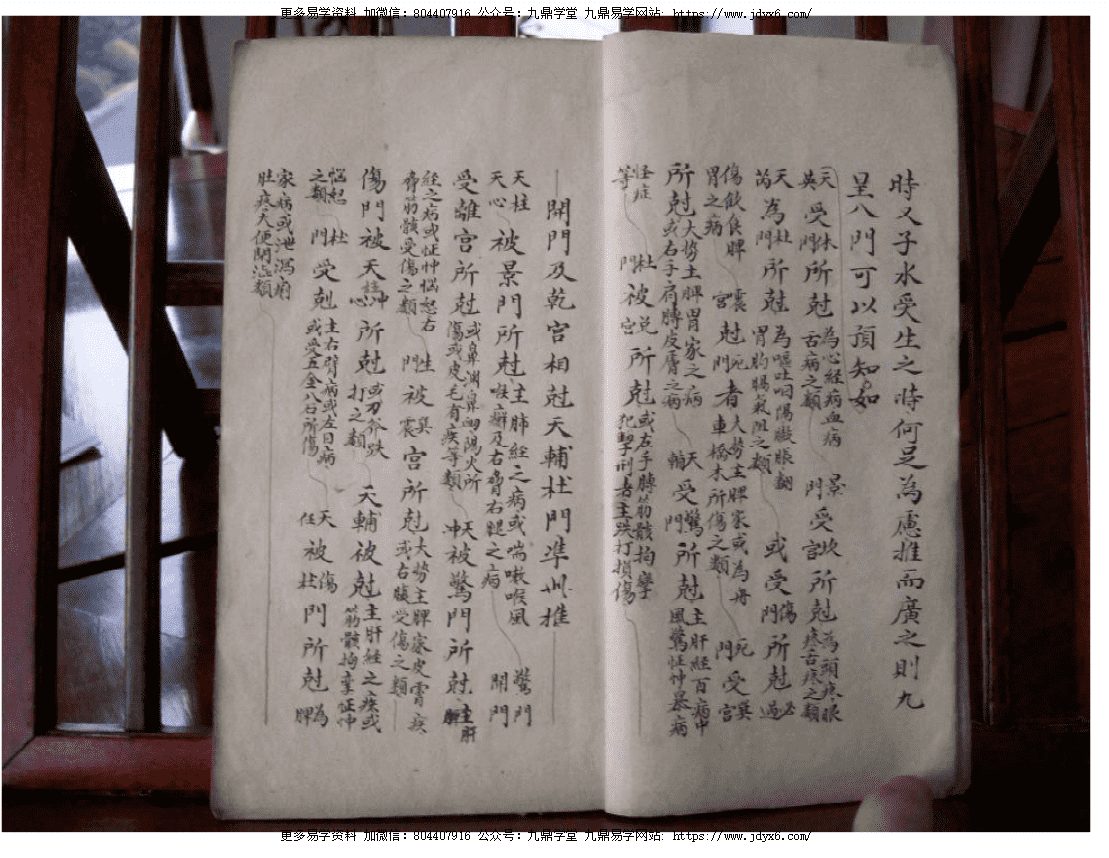 更多易学资料 加微信：804407916 公众号：九鼎学堂 九鼎易学网站: https://www.jdyx6.com/
時又子水受生之時何足為慮推而廣之則九
星八門可以預知如
天英受休門所尅為心經病血病舌病之類 景門受坎宮所尅為頭疼眼疼舌疾之類
天芮為杜門所尅為嘔吐咽隔膨脹翻胃胸腸氣阻之類 或受傷門所尅必過
傷飲食脾胃之病 震宮尅死門者大勢主脾家或為舟車橋木所傷之類 死門受巽宮
所尅大勢主脾胃家之病或右手肩膊皮膚之病 天輔受驚門所尅主肝經百病中風驚怔忡暴病
怪症等 杜門被兌宮所尅或左手膊筋骸拘攣犯擊刑者主跌打損傷
開門及乾宮相尅天輔杜門準此推
天柱天心被景門所尅主肺經之病或喘嗽喉風喉癬及右脅右腿之病 驚門開門
受離宮所尅或鼻淵鼻衄陽火所傷或皮毛有疾等類 天冲被驚門所尅主肝
經之病或怔忡惱怒右脅筋骸受傷之類 生門被巽震宮所尅大勢主脾家皮膚疾或右腿受傷之類
傷門被天柱心所尅或刀斧鉄打之類 天輔被尅主肝經之疾或筋骸拘攣怔忡
惱怒之類 杜門受尅主右臂病或左目病或受五金八石所傷 天任被傷杜門所尅為脾
家病或泄瀉腑肚疼大便閉澁類
更多易学资料 加微信：804407916 公众号：九鼎学堂 九鼎易学网站: https://www.jdyx6.com/